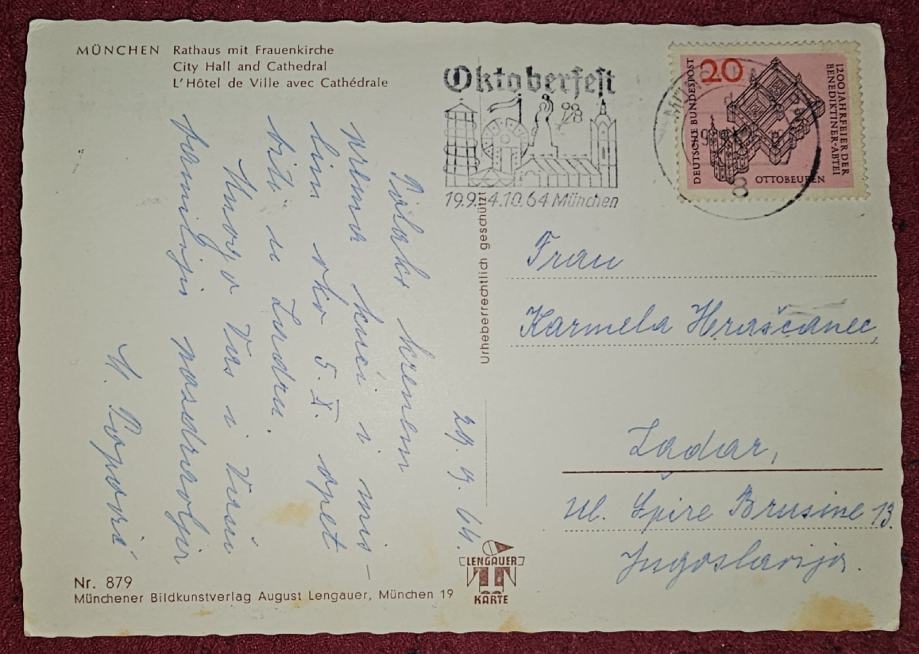 MÜNCHEN Rathaus mit Frauenkirche
City Hall and Cathedral
L'Hôtel de Ville avec Cathédrale
Oktoberfest
19.9.-4.10.64 München
20
DEUTSCHE BUNDESPOST
1200 JAHRFEIER DER
BENEDIKTINER-ABTEI
OTTOBEUREN
8
Urheberrechtlich geschützt
29. 9. 64.
Polako krenem
prema kući i mis-
lim oko 5. X. opet
biti u Zadru.
Mnogo Vas i Vašu
familiju pozdravlja
M. Popović
Frau
Karmela Hraščanec,
Zadar,
Ul. Spire Brusine 13.
Jugoslavija.
Nr. 879
Münchener Bildkunstverlag August Lengauer, München 19
LENGAUER
KARTE